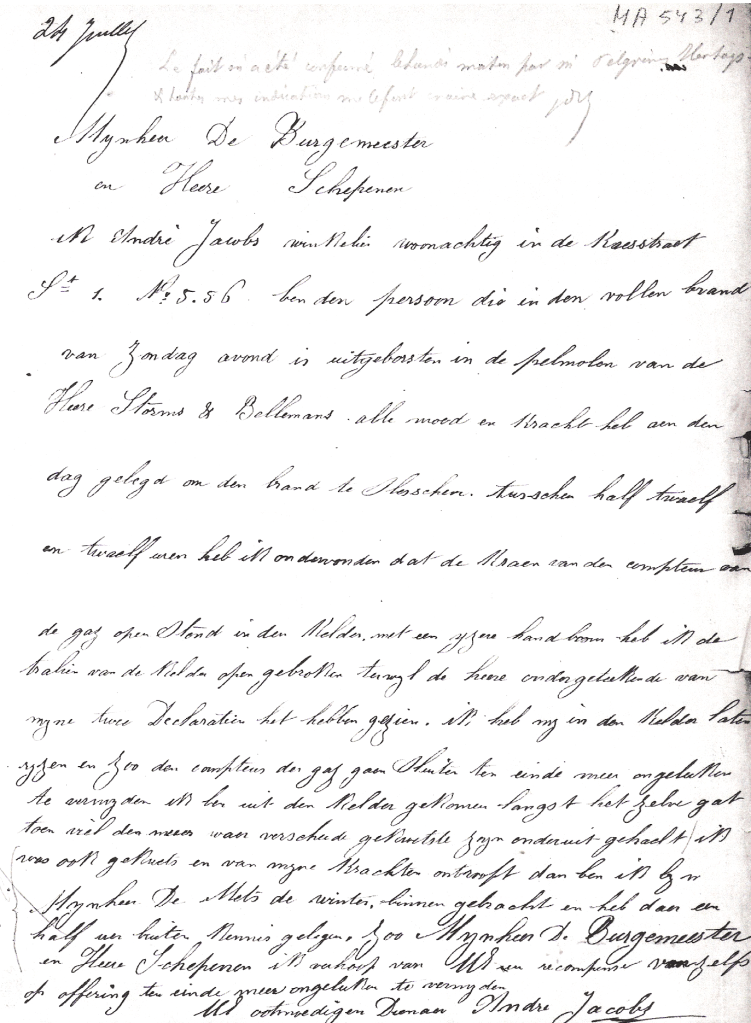 MA 543/1
24 Juillet
Le fait m'a été confirmé, le lundi matin par m
& toutes mes indications me le font croire exact
Mynheer De Burgemeester
en Heere Schepenen
ik André Jacobs winkelier woonachtig in de Kaesstraet
St 1. No 5.56 ben den persoon die in den vollen brand
van Zondag avond is uitgeborsten in de pelmolen van de
Heere Storms & Bellemans alle moed en kracht heb aen den
dag gelegd om den brand te blusschen. tusschen half twaelf
en twaelf uren heb ik ondervonden dat de kraen van den compteur van
de gaz open stond in den kelder, met een yzere handboom heb ik de
tralien van de kelder open gebroken terwyl de heere ondergeteekende van
myne twee Declaratien het hebben gezien. ik heb my in den kelder laten
zyzen en zoo den compteur der gaz gaen sluiten ten einde meer ongelukken
te vermyden ik ben uit den kelder gekomen langst het zelve gat
toen viel den muer waer verscheide gekwetste zyn onderuit gehaelt, ik
was ook gekwets en van myne krachten ontrooft dan ben ik by
Mynheer De Mets de winter, binnen gebracht en heb daer een
half uer buiten kennis gelegen. Zoo Mynheer De Burgemeester
en Heere Schepenen ik verhoop van UE een recompense van zelfs
op offering ten einde meer ongelukken te vermyden
UE ootmoedigen Dienaer Andre Jacobs